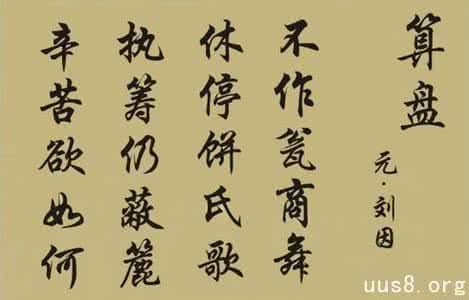 算盘
元·刘因
不作瓮商舞
休停饼氏歌
执筹仍蔽簏
辛苦欲如何
uus8.org